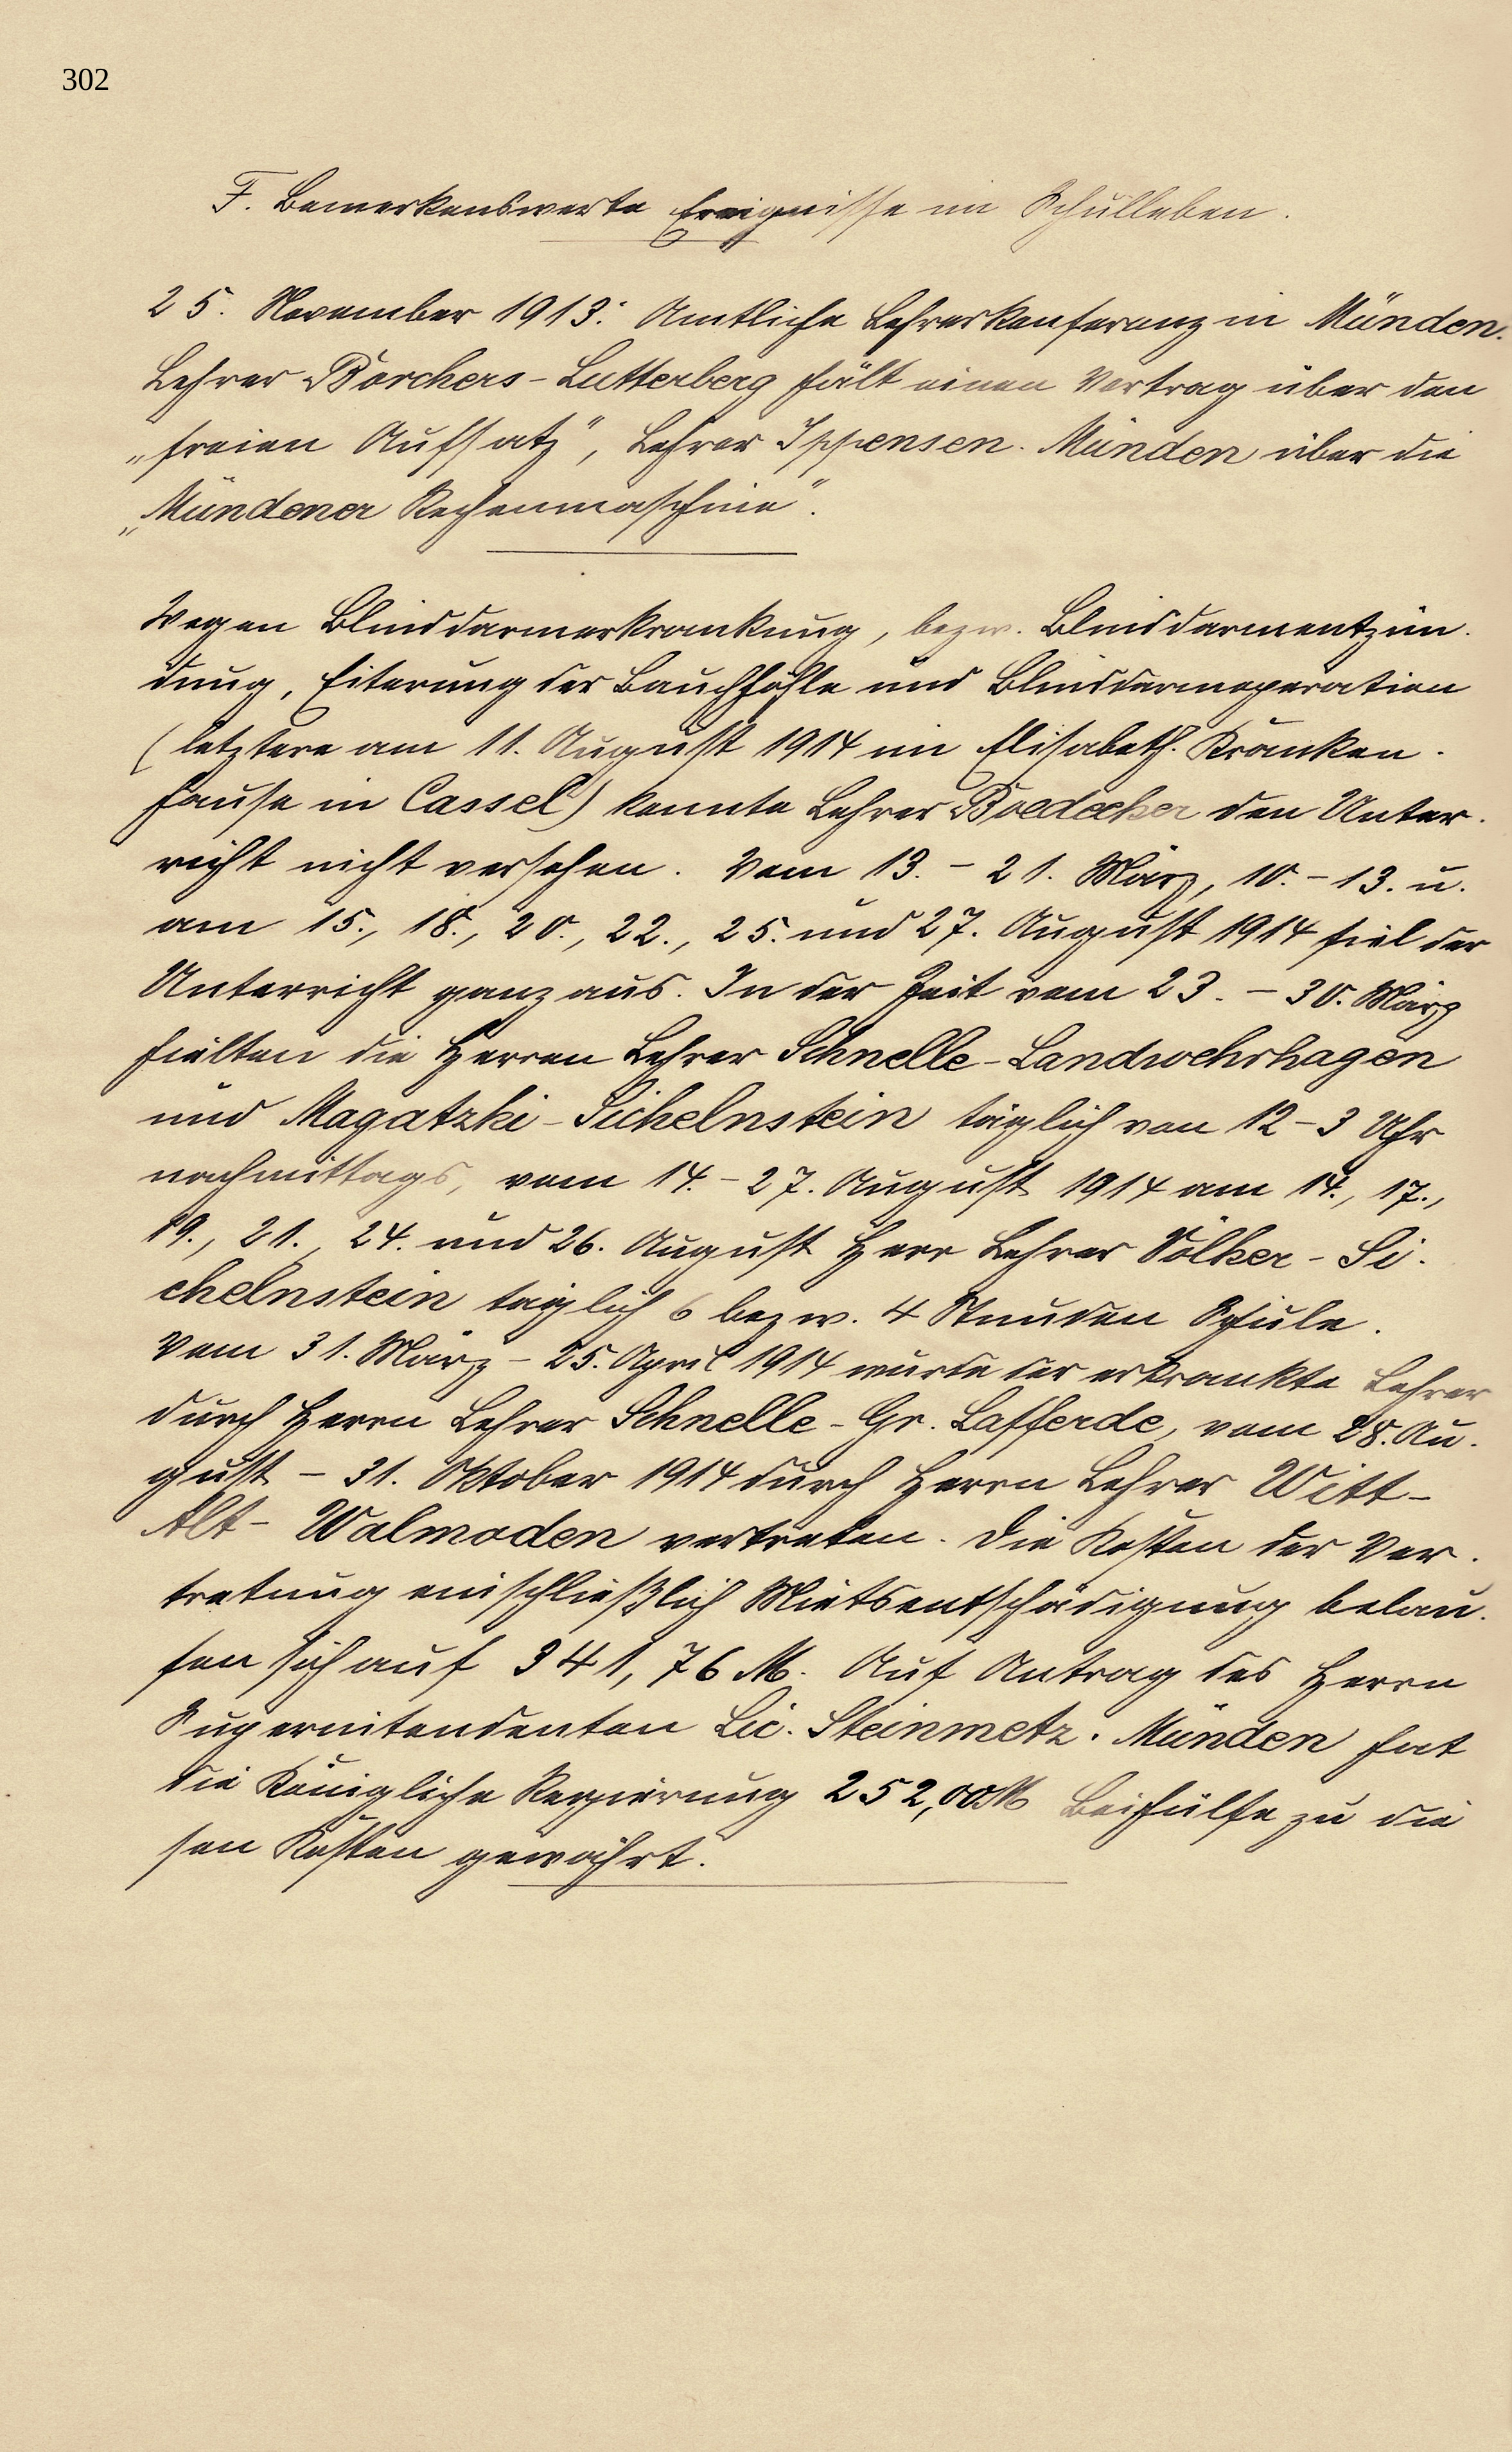 302
F. Bemerkenswerte Ereignisse im Schulleben.
25. November 1913: Amtliche Lehrerkonferenz in Münden.
Lehrer Borchers-Lutterberg hält einen Vortrag über den
„freien Aufsatz“, Lehrer Ippensen-Münden über die
„Mündener Rechenmaschine“.
Wegen Blinddarmerkrankung, bezw. Blinddarmentzün-
dung, Eiterung der Bauchhöhle und Blinddarmoperation
(letztere am 11. August 1914 im Elisabeth-Kranken-
hause in Cassel) konnte Lehrer Boedecker den Unter-
richt nicht versehen. Vom 13.-21. März, 10.-13. u.
am 15., 18., 20., 22., 25. und 27. August 1914 fiel der
Unterricht ganz aus. In der Zeit vom 23.-30. März
hielten die Herren Lehrer Schnelle-Landwehrhagen
und Magatzki-Sichelnstein täglich von 12-3 Uhr
nachmittags, vom 14.-27. August 1914 am 14., 17.,
19., 21., 24. und 26. August Herr Lehrer Völker-Si-
chelnstein täglich 6 bezw. 4 Stunden Schule.
Vom 31. März - 25. April 1914 wurde der erkrankte Lehrer
durch Herrn Lehrer Schnelle-Gr. Lafferde, vom 28. Au-
gust - 31. Oktober 1914 durch Herrn Lehrer Witt-
Alt-Walmoden vertreten. Die Kosten der Ver-
tretung einschließlich Mietsentschädigung belau-
fen sich auf 341,76 M. Auf Antrag des Herrn
Superintendenten Lic. Steinmetz-Münden hat
die Königliche Regierung 252,00 M Beihülfe zu die
sen Kosten gewährt.